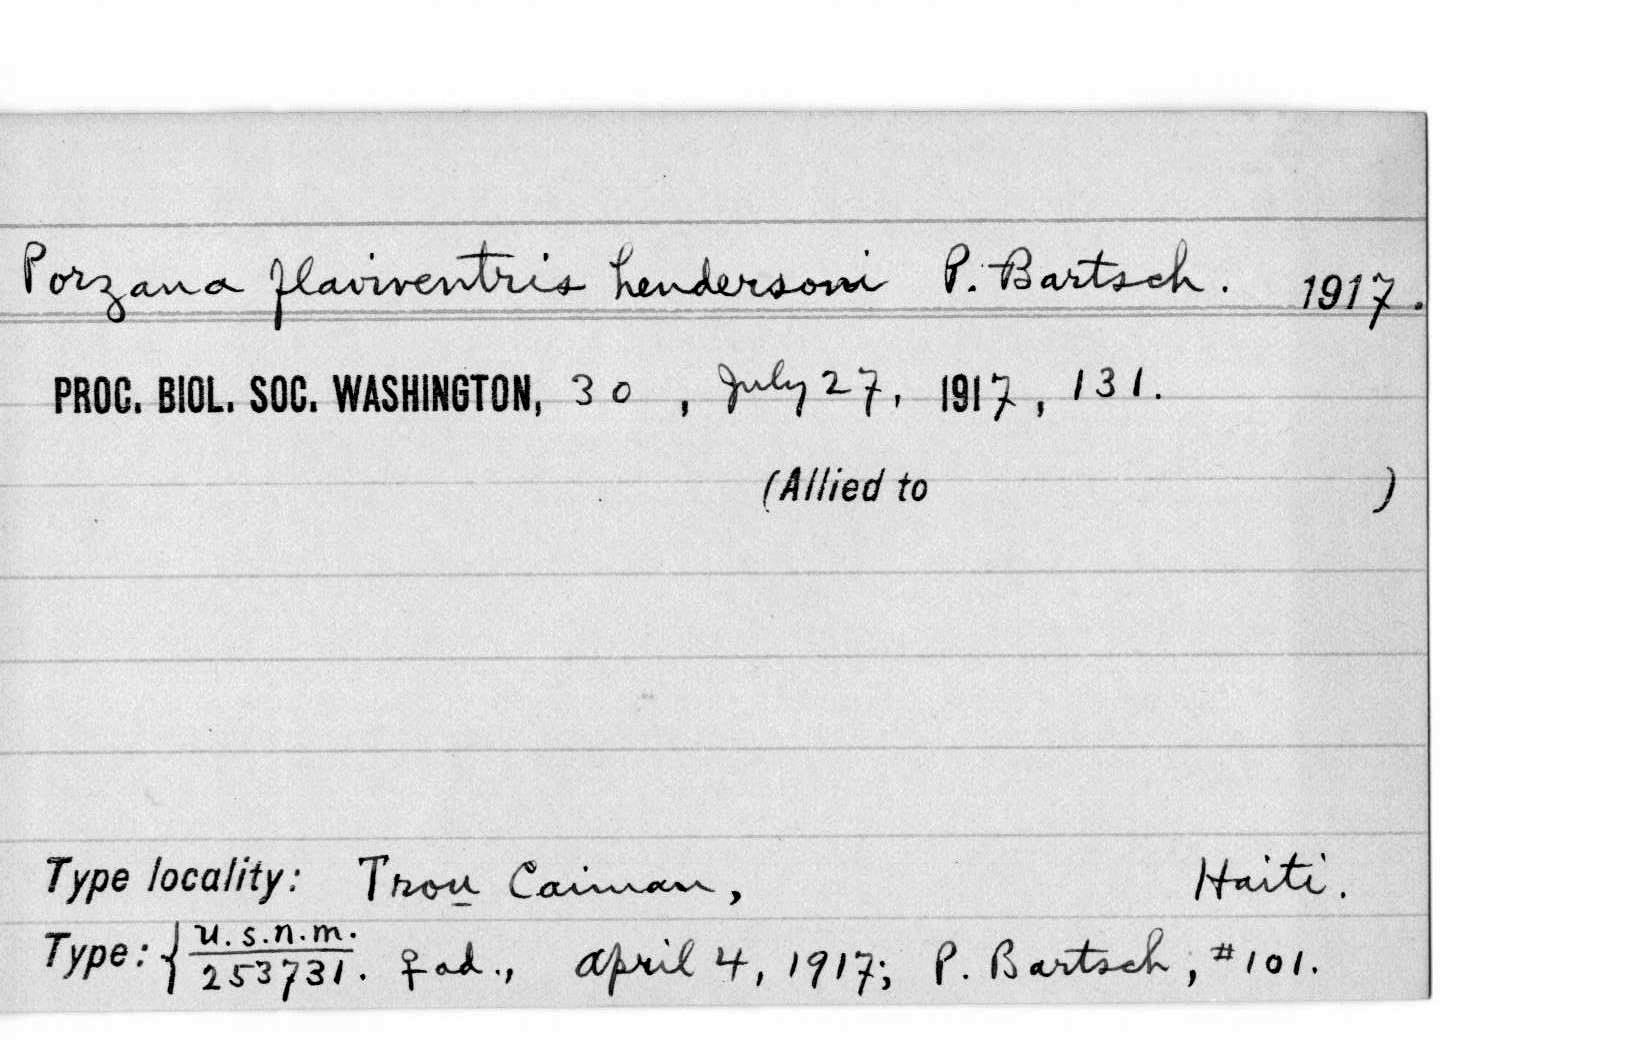 Porzana flaviventris hendersoni P. Bartsch. 1917.
PROC. BIOL. SOC. WASHINGTON, 30, July 27, 1917, 131.
(Allied to )
Type locality: Trou Caiman, Haiti.
Type: { U.S.N.M.
253731. ♀ ad., April 4, 1917; P. Bartsch, #101.